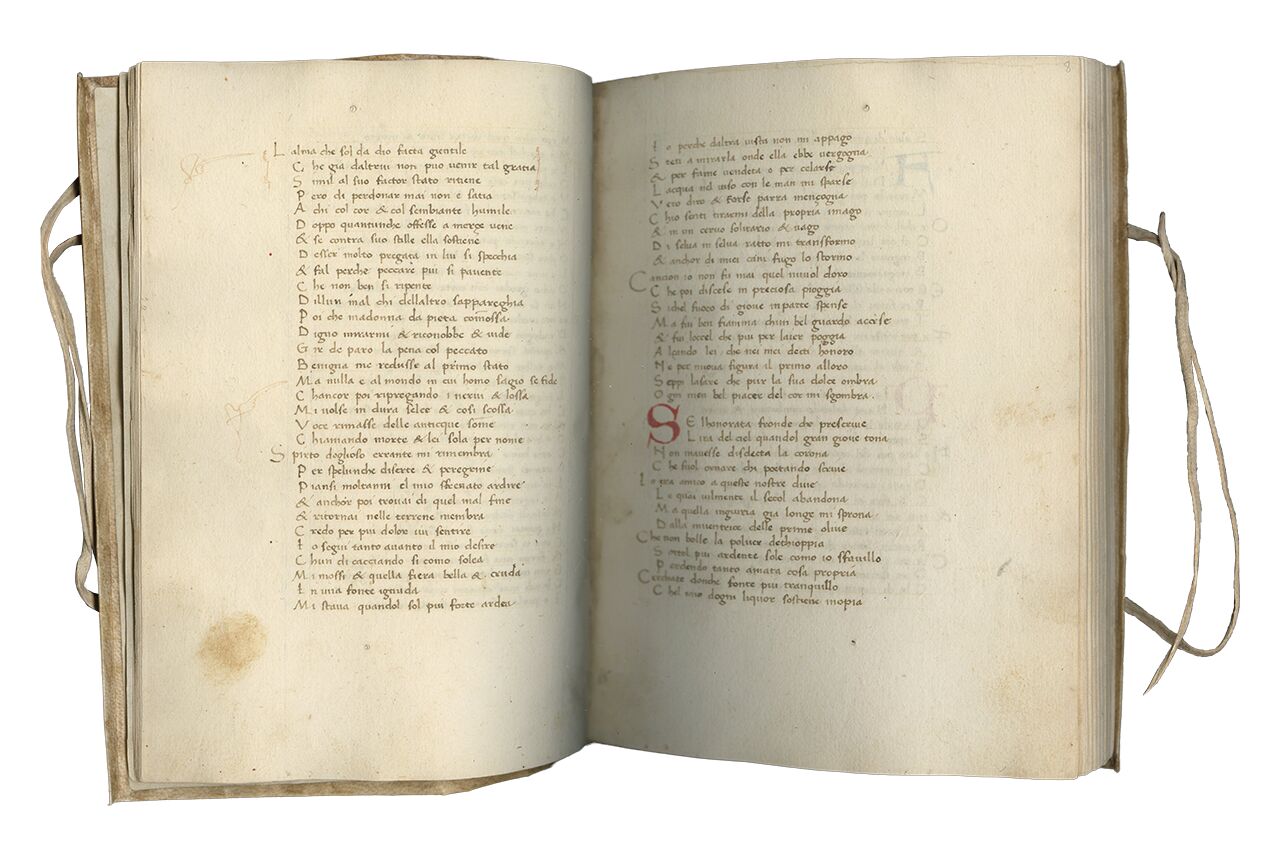 L alma che sol da dio facta gientile
C he gia daltrui non puo venir tal gratia
S imil al suo factor stato ritiene
P ero di perdonar mai non e satia
A chi col cor & col sembiante humile
D oppo quantunche offese a merge vene
& se contra suo stille ella sostiene
D esser molto pregata in lui si specchia
& fal perche peccare piu si pavente
C he non ben si ripente
D illun mal chi dellaltro sappareghia
P oi che madonna da pieta commossa
D igno mirarmi & riconobbe & vide
G ir de paro la pena col peccato
B enigna me redusse al primo stato
M a nulla e al mondo in cui homo sagio se fide
C hancor poi ripregando i nervi & lossa
M i volse in dura selce & cosi scossa
V oce rimasse delle anticque some
C hiamando morte & lei sola per nome
S pirto doglioso errante mi rimembra
P er spelunche diserte & peregrine
P iansi moltanni el mio sfrenato ardire
& anchor poi trovai di quel mal fine
& ritornai nelle terrene membra
C redo per piu dolor ivi sentire
I o segui tanto avanto il mio desire
C hun di cacciando si como solea
M i mossi & quella fiera bella & cruda
I n una fonte ignuda
M i stava quandol sol piu forte ardea
8
I o perche daltra vista non mi appago
S teti a mirarla onde ella ebbe vergogna
& per farne vendeta o per celarse
L acqua nel viso con le man mi sparse
V ero diro & forse parra mençogna
C hio senti tirarmi della propria imago
& in un cervo solitario & vago
D i selva in selva ratto mi transformo
& anchor di miei cani fugo lo stormo
C ancion io non fu mai quel nuvol doro
C he poi discese in preciosa pioggia
S ichel fuoco di giove inparte spense
M a fui ben fiamma chun bel guardo accese
& fui loccel che piu per laier poggia
A lçando lei che nei mei decti honoro
N e per nuova figura il primo alloro
S eppi lasare che pur la sua dolce ombra
O gni men bel piacer del cor mi sgombra
S E lhonorata fronde che prescrive
L ira del ciel quandol gran giove tona
N on mavesse disdecta la corona
C he suol ornare chi poetando scrive
I o era amico a queste nostre dive
L e quai vilmente il secol abandona
M a quella ingiuria gia longe mi sprona
D alla inventrice delle prime olive
C he non bolle la polver dethioppia
S ottol piu ardente sole como io sfavillo
P erdendo tanto amata cosa propria
C erchate donche fonte piu tranquillo
C hel mio dogni liquor sostiene inopia